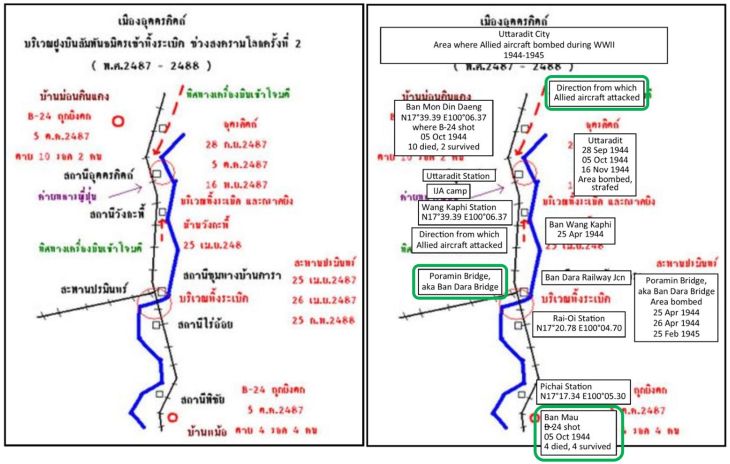 เมืองอุตตรดิตถ์
บริเวณฝูงบินสัมพันธมิตรเข้าทิ้งระเบิด ช่วงสงครามโลกครั้งที่ 2
( พ.ศ.2487 - 2488 )
ทิศทางเครื่องบินเข้าโจมตี
บ้านม่อนดินแดง
B-24 ถูกยิงตก
5 ต.ค.2487
ตาย 10 รอด 2 คน
อุตรดิตถ์
28 ก.ย.2487
5 ต.ค.2487
16 พ.ย.2487
สถานีอุตรดิตถ์
ค่ายทหารญี่ปุ่น
บริเวณทิ้งระเบิด และกราดยิง
สถานีวังกะพี้
บ้านวังกะพี้
25 เม.ย.248
ทิศทางเครื่องบินเข้าโจมตี
สะพานปรมินทร์
สถานีชุมทางบ้านดารา
25 เม.ย.2487
สะพานปรมินทร์
บริเวณทิ้งระเบิด
26 เม.ย.2487
สถานีไร่อ้อย
25 ก.พ.2488
B-24 ถูกยิงตก
สถานีพิชัย
5 ต.ค.2487
บ้านแม้อ
ตาย 4 รอด 4 คน
Uttaradit City
Area where Allied aircraft bombed during WWII
1944-1945
Direction from which
Allied aircraft attacked
Ban Mon Din Daeng
N17°39.39 E100°06.37
where B-24 shot
05 Oct 1944
10 died, 2 survived
Uttaradit
28 Sep 1944
05 Oct 1944
16 Nov 1944
Area bombed,
strafed
Uttaradit Station
IJA camp
Wang Kaphi Station
N17°39.39 E100°06.37
Ban Wang Kaphi
25 Apr 1944
Direction from which
Allied aircraft attacked
Poramin Bridge,
aka Ban Dara Bridge
Ban Dara Railway Jcn
Poramin Bridge,
aka Ban Dara Bridge
Area bombed
25 Apr 1944
26 Apr 1944
25 Feb 1945
บริเวณทิ้งระเบิด
Rai-Oi Station
N17°20.78 E100°04.70
Pichai Station
N17°17.34 E100°05.30
Ban Mau
B-24 shot
05 Oct 1944
4 died, 4 survived